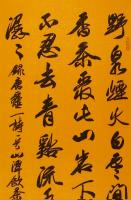 野泉煙火白雲間
香茶愛此山岩下
不忍去青谿流
潺錄唐靈一詩山潭飲茶